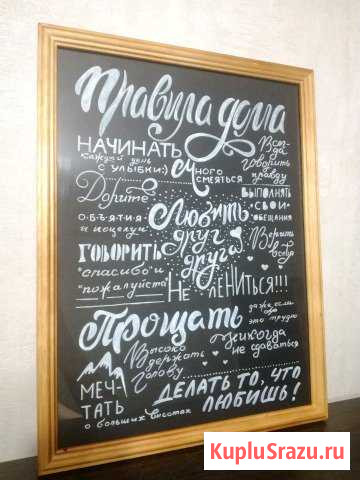 Правила дома
НАЧИНАТЬ
каждый день
с улыбки:)
Много
смеяться
Всегда
говорить
правду
Дарите
ОБЪЯТИЯ
и поцелуи
ВЫПОЛНЯТЬ
СВОИ
ОБЕЩАНИЯ
Любить
друг
друга
Верить
в себя
ГОВОРИТЬ
"спасибо" и
"пожалуйста"
НЕ ЛЕНИТЬСЯ!!!
Прощать
даже если
это трудно
Высоко
держать
голову
Никогда
не сдаваться
МЕЧ-
ТАТЬ
о больших высотах
ДЕЛАТЬ ТО, ЧТО
ЛЮБИШЬ!
KupluSrazu.ru